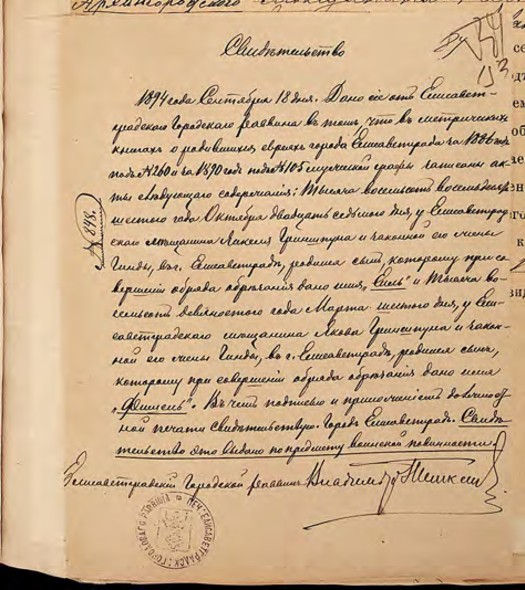 Свидѣтельство
1894 года Сентября 18 дня. Дано сіе отъ Елисавет-
градскаго Городскаго Раввина въ томъ, что въ метрическихъ
книгахъ о родившихся евреяхъ города Елисаветграда за 1886 годъ
подъ № 260 и за 1890 годъ подъ № 105 мужеской графы записаны ак-
ты слѣдующаго содержанія: Тысяча восемьсотъ восемьдесятъ
шестого года Октября двадцать седьмого дня, у Елисаветград-
скаго мѣщанина Гринштуна и законной его жены
Гинды, въ г. Елисаветградѣ, родился сынъ, которому при со-
вершеніи обряда обрѣзанія дано имя и Тысяча во-
семьсотъ девяностого года Марта шестого дня, у Ели-
саветградскаго мѣщанина Якова Гринштуна и закон-
ной его жены Гинды, въ г. Елисаветградѣ, родился сынъ,
которому при совершеніи обряда обрѣзанія дано имя
„Фишель“. Въ чемъ подписью и приложеніемъ должност-
ной печати свидѣтельствую. Городъ Елисаветградъ. Свидѣ-
тельство это выдано по предмету воинской повинности.
Елисаветградскій Городской Раввинъ Владиміръ
№ 848.